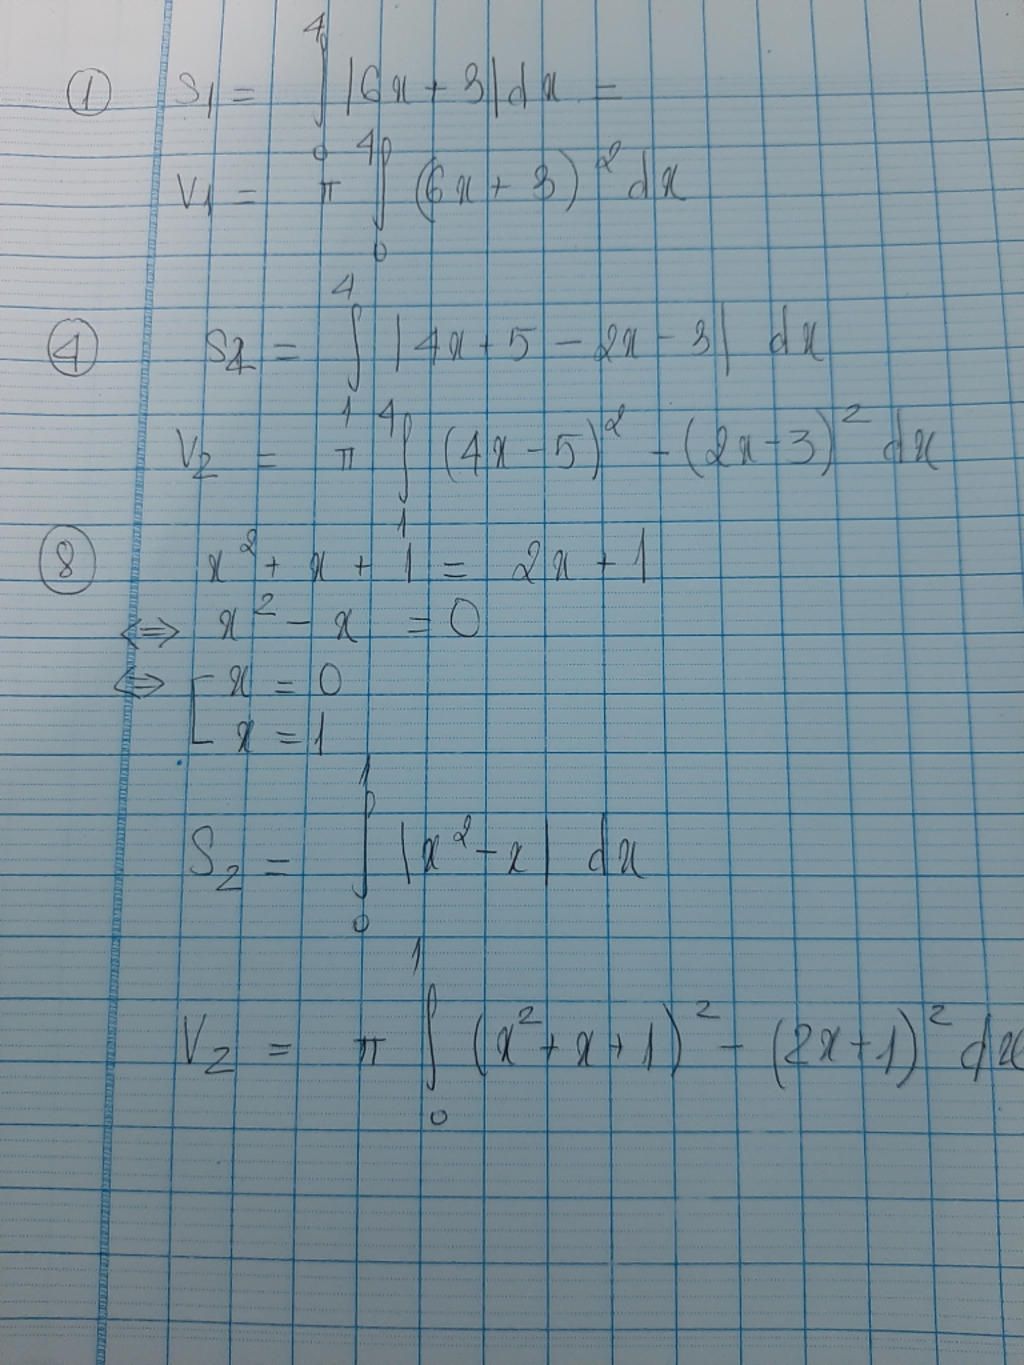 ① S₁ = ∫₀⁴ |6x + 3| dx =
V₁ = π ∫₀⁴ (6x + 3)² dx
④ S₂ = ∫₁⁴ |4x + 5 - 2x - 3| dx
V₂ = π ∫₁⁴ (4x - 5)² - (2x - 3)² dx
⑧ x² + x + 1 = 2x + 1
⇔ x² - x = 0
⇔ [ x = 0
x = 1
S₂ = ∫₀¹ |x² - x| dx
V₂ = π ∫₀¹ (x² + x + 1)² - (2x + 1)² dx